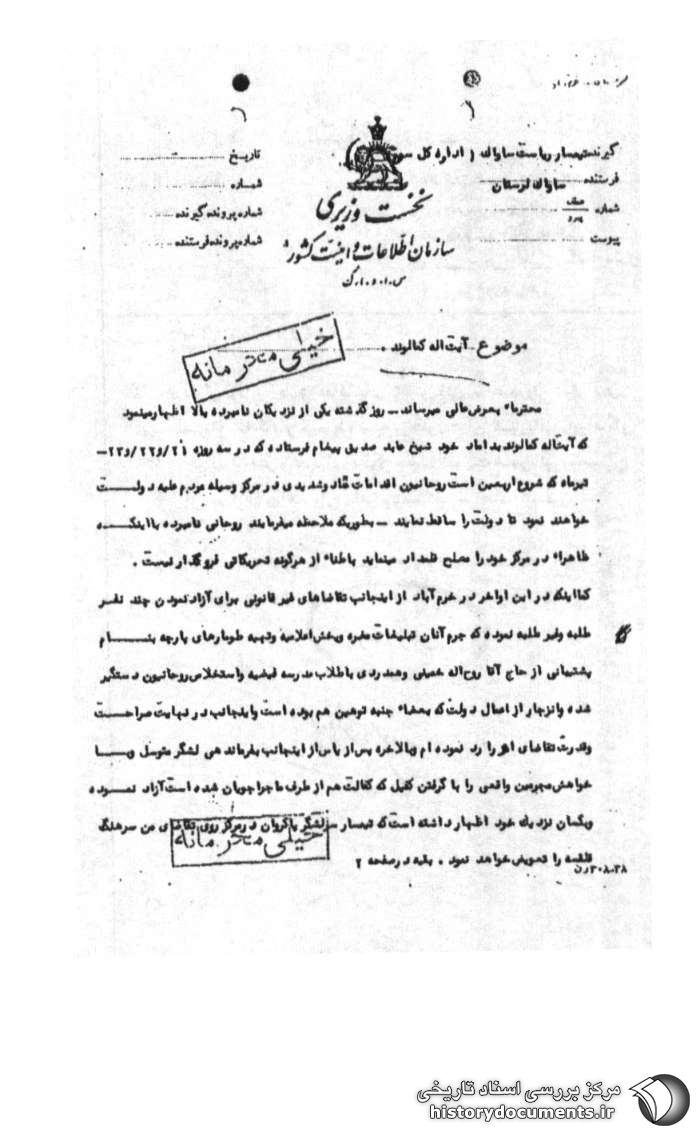 گیرنده تیمسار ریاست ساواک ( اداره کل سوم )
فرستنده ساواک لرستان
شماره
پیوست
تاریخ
شماره
شماره پرونده گیرنده
شماره پرونده فرستنده
نخست وزیری
سازمان اطلاعات و امنیت کشور
س.ا.و.ا.ک
خیلی محرمانه
موضوع آیت اله کمالوند .
محترماً بعرض عالی میرساند ـ روز گذشته یکی از نزدیکان نامبرده بالا اظهار مینمود
که آیت اله کمالوند بداماد خود شیخ عابد صدیق پیغام فرستاده که در سه روزه ۲۱/و۲۲/و۲۳ـ
تیرماه که شروع اربعین است روحانیون اقدامات حاد و شدیدی در مرکز وسیله مردم علیه دولت
خواهند نمود تا دولت را ساقط نمایند ـ بطوریکه ملاحظه میفرمایند روحانی نامبرده با اینکه
ظاهراً در مرکز خود را مصلح قلمداد مینماید باطناً از هرگونه تحریکاتی فروگذار نیست .
کما اینکه در این اواخر در خرم آباد از اینجانب تقاضاهای غیر قانونی برای آزاد نمودن چند نفر
طلبه وغیر طلبه نموده که جرم آنان تبلیغات مضره وپخش اعلامیه وتهیه طومارهای پارچه بنام
پشتیبانی از حاج آقا روح اله خمینی وهمدردی باطلاب مدرسه فیضیه واستخلاص روحانیون دستگیر
شده وانزجار از اعمال دولت که بعضاً جنبه توهین هم بوده است واینجانب در نهایت صراحت
وقدرت تقاضای او را رد نموده ام وبالاخره پس از یأس از اینجانب بفرماندهی لشگر متوسل وبا
خواهش مجرمین واقعی را با گرفتن کفیل که کفالت هم از طرف ماجراجویان شده است آزاد نموده
وبکسان نزدیک خود اظهار داشته است که تیمسار سرلشگر پاکروان در مرکز روی تقاضای من سرهنگ
را تعویض خواهد نمود . بقیه در صفحه ۲
خیلی محرمانه
مرکز بررسی اسناد تاریخی
historydocuments.ir